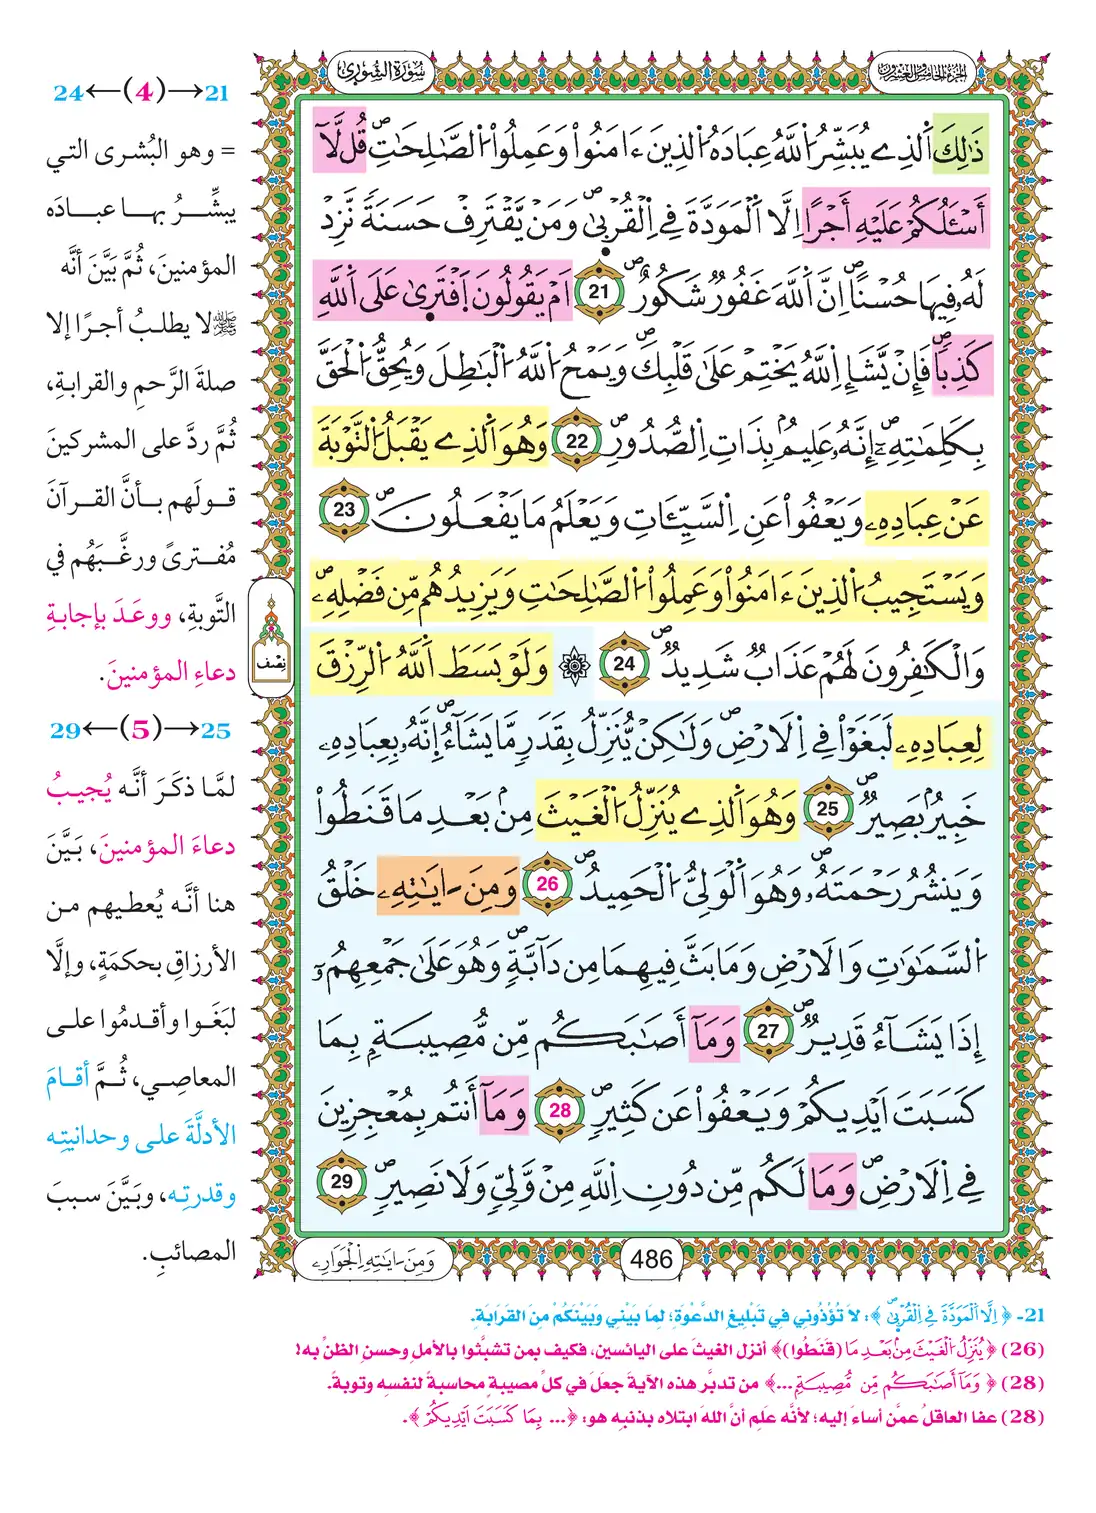 الجزء الخامس والعشرون
سُورَةُ الشُّورَىٰ
ذَٰلِكَ اَ۬لذِے يُبَشِّرُ اُ۬للَّهُ عِبَادَهُ اُ۬لذِينَ ءَامَنُواْ وَعَمِلُواْ اُ۬لصَّٰلِحَٰتِۖ قُل لَّآ
أَسْـَٔلُكُمْ عَلَيْهِ أَجْراً اِلَّا اَ۬لْمَوَدَّةَ فِے اِ۬لْقُرْب۪ىٰۖ وَمَنْ يَّقْتَرِفْ حَسَنَةً نَّزِدْ
لَهُۥ فِيهَا حُسْناًۖ اِنَّ اَ۬للَّهَ غَفُورٌ شَكُورٌۖ 21 اَمْ يَقُولُونَ اَ۪فْتَر۪ىٰ عَلَى اَ۬للَّهِ
كَذِباًۖ فَإِنْ يَّشَإِ اِ۬للَّهُ يَخْتِمْ عَلَىٰ قَلْبِكَۖ وَيَمْحُ اُ۬للَّهُ اُ۬لْبَٰطِلَ وَيُحِقُّ اُ۬لْحَقَّ
بِكَلِمَٰتِهِۦٓۖ إِنَّهُۥ عَلِيمُۢ بِذَاتِ اِ۬لصُّدُورِۖ 22 وَهُوَ اَ۬لذِے يَقْبَلُ اُ۬لتَّوْبَةَ
عَنْ عِبَادِهِۦ وَيَعْفُواْ عَنِ اِ۬لسَّيِّـَٔاتِ وَيَعْلَمُ مَا يَفْعَلُونَۖ 23
وَيَسْتَجِيبُ اُ۬لذِينَ ءَامَنُواْ وَعَمِلُواْ اُ۬لصَّٰلِحَٰتِ وَيَزِيدُهُم مِّن فَضْلِهِۦۖ
وَالْكَٰفِرُونَ لَهُمْ عَذَابٌ شَدِيدٌۖ 24 ۞ وَلَوْ بَسَطَ اَ۬للَّهُ اُ۬لرِّزْقَ
لِعِبَادِهِۦ لَبَغَوْاْ فِے اِ۬لَارْضِۖ وَلَٰكِنْ يُّنَزِّلُ بِقَدَرٍ مَّا يَشَآءُۖ اِنَّهُۥ بِعِبَادِهِۦ
خَبِيرُۢ بَصِيرٌۖ 25 وَهُوَ اَ۬لذِے يُنَزِّلُ اُ۬لْغَيْثَ مِنۢ بَعْدِ مَا قَنَطُواْ
وَيَنشُرُ رَحْمَتَهُۥۖ وَهُوَ اَ۬لْوَلِيُّ اُ۬لْحَمِيدُۖ 26 وَمِنَ اٰيَٰتِهِۦ خَلْقُ
اُ۬لسَّمَٰوَٰتِ وَالَارْضِ وَمَا بَثَّ فِيهِمَا مِن دَآبَّةٍۖ وَهُوَ عَلَىٰ جَمْعِهِمُۥٓ
إِذَا يَشَآءُ قَدِيرٌۖ 27 وَمَآ أَصَٰبَكُم مِّن مُّصِيبَةِۢ بِمَا
كَسَبَتَ اَيْدِيكُمْ وَيَعْفُواْ عَن كَثِيرٍۖ 28 وَمَآ أَنتُم بِمُعْجِزِينَ
فِے اِ۬لَارْضِۖ وَمَا لَكُم مِّن دُونِ اِ۬للَّهِ مِنْ وَّلِيّٖ وَلَا نَصِيرٍۖ 29
نِصْف
وَمِنَ اٰيَٰتِهِ اِ۬لْجَوَارِۦ
486
24←(4)→21
= وهو البُشرى التي
يبشِّرُ بها عبادَه
المؤمنينَ، ثُمَّ بَيَّنَ أنَّه
ﷺ لا يطلبُ أجرًا إلا
صلةَ الرَّحمِ والقرابةِ،
ثُمَّ ردَّ على المشركينَ
قولَهم بأنَّ القرآنَ
مُفترىً ورغَّبَهُم في
التَّوبةِ، ووعَدَ بإجابةِ
دعاءِ المؤمنينَ.
29←(5)→25
لمَّا ذكَرَ أنَّه يُجيبُ
دعاءَ المؤمنينَ، بَيَّنَ
هنا أنَّه يُعطيهم من
الأرزاقِ بحكمَةٍ، وإلَّا
لبَغَوا وأقدمُوا على
المعاصِي، ثُمَّ أقامَ
الأدلَّةَ على وحدانيتِه
وقدرتِه، وبَيَّنَ سببَ
المصائبِ.
21- ﴿اِلَّا اَ۬لْمَوَدَّةَ فِے اِ۬لْقُرْب۪ىٰۖ﴾: لَا تُؤْذُونِي فِي تَبْلِيغِ الدَّعْوَةِ؛ لِمَا بَيْنِي وَبَيْنَكُمْ مِنَ القَرَابَةِ.
(26) ﴿يُنَزِّلُ اُ۬لْغَيْثَ مِنۢ بَعْدِ مَا (قَنَطُوا)﴾ أنزل الغيثَ على اليائسين، فكيف بمن تشبَّثوا بالأملِ وحسنِ الظنِّ به!
(28) ﴿وَمَآ أَصَٰبَكُم مِّن مُّصِيبَةٍ ...﴾ من تدبَّر هذه الآيةَ جعلَ في كلِّ مصيبةٍ محاسبةً لنفسِه وتوبةً.
(28) عفا العاقلُ عمَّن أساءَ إليه؛ لأنَّه علِم أنَّ اللهَ ابتلاه بذنبِه هو: ﴿... بِمَا كَسَبَتَ اَيْدِيكُمْ﴾.